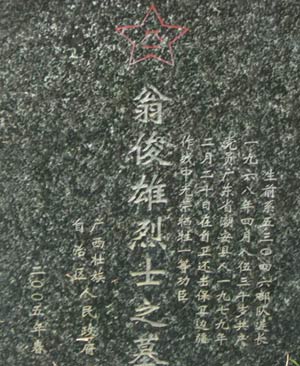 八一
生前系五三〇四六部队连长
一九六八年四月入伍三十岁共产
党员广东省潮安县人一九七九年
二月二十日在自卫还击保卫边疆
作战中光荣牺牲一等功臣
翁俊雄烈士之墓
广西壮族
自治区人民政府
二〇〇五年春